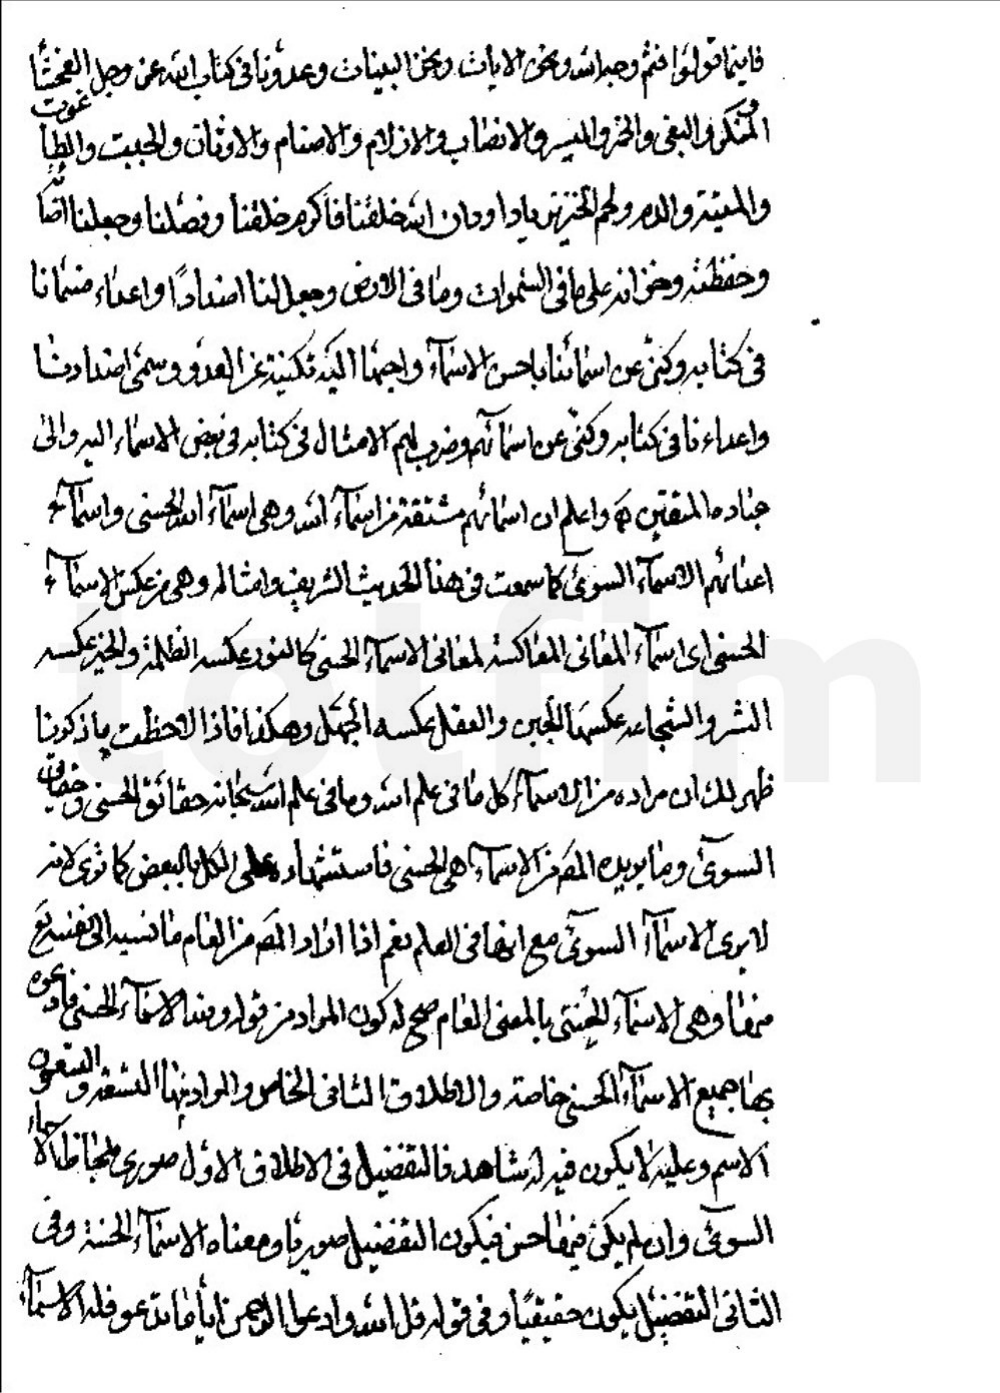 فاينما تولوا فثم وجه الله ونحن الايات ونحن البينات وعدونا فى كتاب الله عز وجل الفحشآ
المنكر والبغى والخمر والميسر والانصاب والازلام والاصنام والاوثان والجبت والطاغوت
والميتة والدم ولحم الخنزير يا داود ان الله خلقنا فاكرم خلقنا وفضلنا وجعلنا امنآ
وحفظته وخزانه على ما فى السموات وما فى الارض وجعل لنا اضدادًا واعداء فسمانا
فى كتابه وكنى عن اسمائنا باحسن الاسمآء واحبها اليه تكنية عن العدو وسمى اضدادنا
واعداءنا فى كتابه وكنى عن اسمآئهم وضرب لهم الامثال فى كتابه فى بعض الاسماء اليه والى
عباده المتقين واعلم ان اسمائهم مشتقة من اسمآء الله وهى اسمآء الله الحسنى واسمآء
اعدائهم الاسمآء السوئ كما سمعت فى هذا الحديث الشريف وامثاله وهى من عكس الاسمآء
الحسنى اى اسمآء المعانى المعاكسة لمعانى الاسمآء الحسنى كالنور عكسه الظلمة والخير عكسه
الشر والشجاعة عكسها الجبن والعقل عكسه الجهل وهكذا فاذا لاحظت ما ذكرنا
ظهر لك ان مراده من الاسمآء كل ما فى علم الله وما فى علم الله سبحانه حقائق الحسنى وحقايق
السوئ وما يريده المص من الاسمآء هى الحسنى فاستشهاده على الكل بالبعض كما ترى لانه
لا يرى الاسمآء السوئ مع انها فى العلم نعم اذا اراد المص من العام ما نسبه الى نفسه تع
منها وهى الاسمآء الحسنى بالمعنى العام صح له كون المراد من قوله ولله الاسمآء الحسنى فادعوه
بها جميع الاسمآء الحسنى خاصة والاطلاق الثانى الخاص والمراد بها التسعة والتسعون
الاسم وعليه لا يكون فيه له شاهد فالتفضيل فى الاطلاق الاول صورى لحاظ الاسماء
السوئ وان لم يكن فيها حسن فيكون التفضيل صوريا ومعناه الاسمآء الحسنة وفى
الثانى التفضيل يكون حقيقيًا وفى قوله قل الله وادعوا الرحمن ايا ما تدعو فله الاسمآء